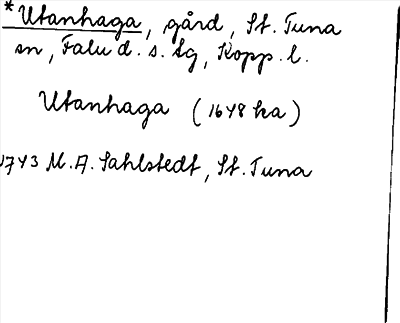 *Utanhaga, gård, St. Tuna
sn, Falu d. s. lg, Kopp. l.
Utanhaga (1648 ka)
1743 M. A. Sahlstedt, St. Tuna